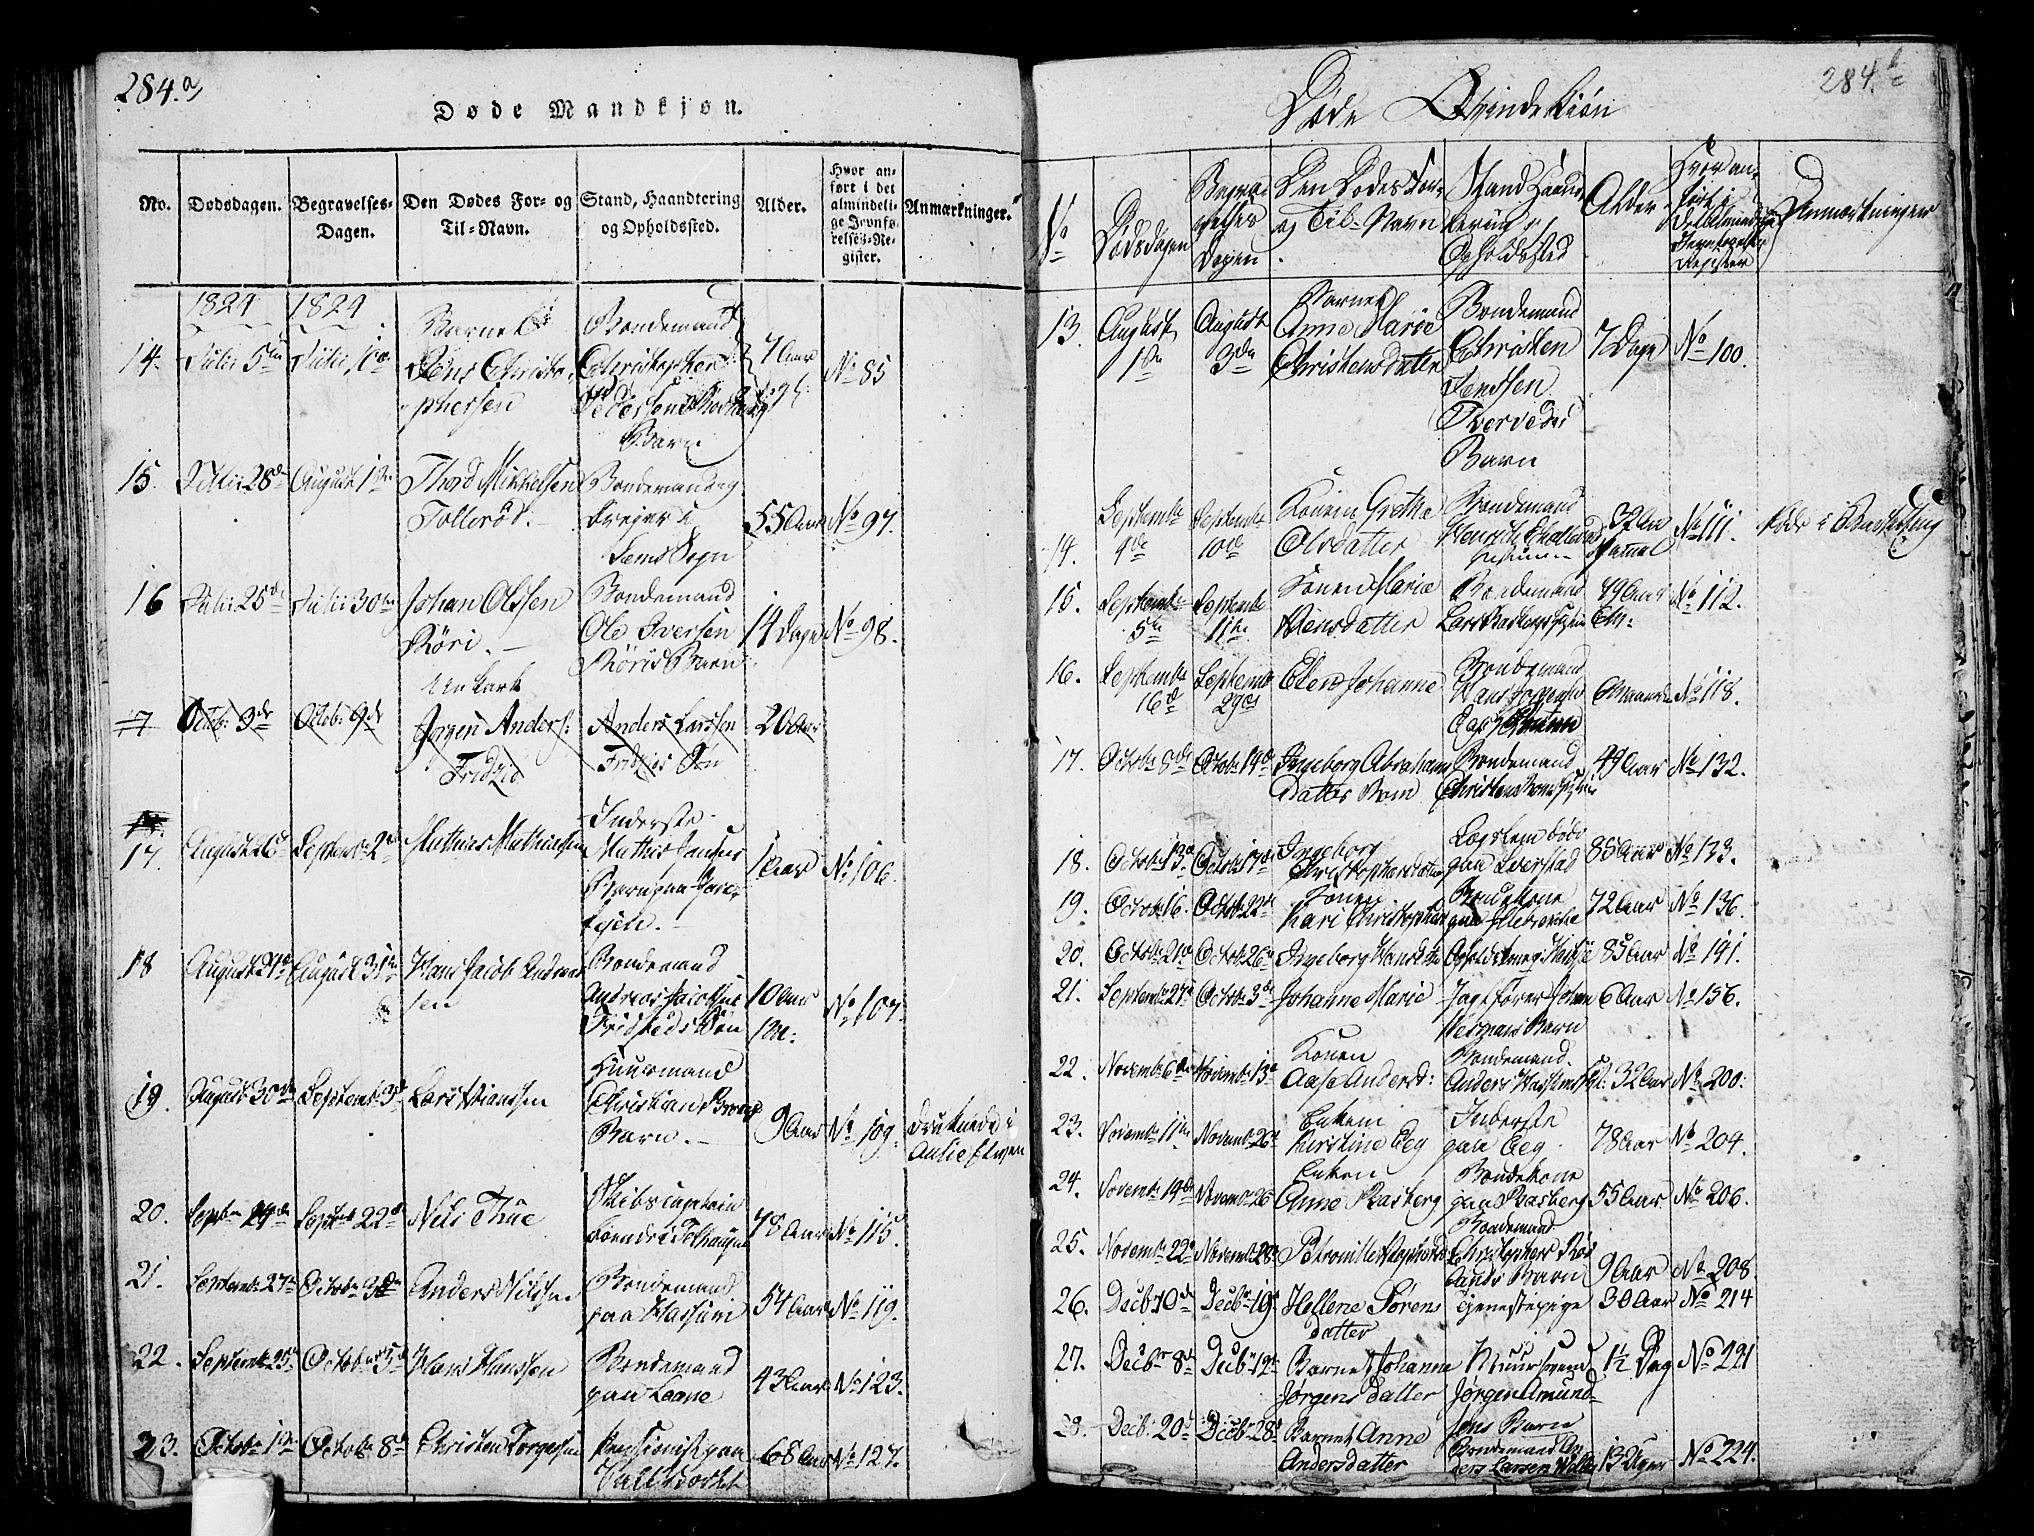 284.a
Døde Mandkjøn.
No.
Dødsdagen.
Begravelses-
Dagen.
Den Dødes For- og
Til-Navn.
Stand, Haandtering
og Opholdssted.
Alder.
Hvor an-
ført i det
almindeli-
ge Jevnfø-
relses-Re-
gister.
Anmærkninger.
1824 1824
14. Julii 5te Julii
Barnet
Jens Christo-
phersen
Bondemand
Christopher
Barn
7 Aar
No 85
15. Julii 28de August 1ste
Thord Mikkelsen
Tollerød.
Bondemand og
i
Sems Sogn
55 Aar No 97.
16 Julii 25de Julii 30te
Johan Olssen
Röri.
Bondemand
Ole Iversen
Röris Barn
14 Dage No 98.
17 Octob: 3de Octob: 9de
Ungkarl
Jörgen Anders:
Fridzø
Anders Larssen
Fridzøs Søn
20 Aar
17 August 26 Septemb 2den
Mathias Mathiassen
Inderste
Mathis Jensens
Barn paa
1 Aar No 106.
18 August 21de August 31te
Hans Jacob Andreas-
sen
Bondemand
Andreas Jacobsens
Søn
10 Aar
No 107.
19. August 30te Septemb: 3de
Lars
Huusmand
Christian
Barn.
9 Aar No 109.
Druknede i
Elven
20. Sept. Sept. 22de
Nils Thue
Skibscapitain
boende i
78 Aar No 115.
21. Septemb: 27de Octob: 3de
Anders Nilssen
Bondemand
paa Hassum
54 Aar No 119.
22. Septemb 25de Octob: 5te
Hans Hanssen
Bondemand
paa Loane
43 Aar No 123.
23. Octob: 1ste Octob: 8de
Christen Torgersen
Pensionist paa
68 Aar No 127.
284.b
Døde Qvindekiön
No
Dödsdagen
Begravelses
Dagen
Den Dødes For-
og Til-Navn
Stand Haand-
tering og
Opholdssted
Alder
Hvor an-
ført i
Det almindelige
Jevnførelses
Register
Anmærkninger
13. August
1ste
August
3de
Barnet
Anne Marie
Christensdatter
Bondemand
Christen
Jenssen
Tvervedes
Barn
7 Dage No 100.
14. Septemb:
4de
Septemb:
10de
Konen Grethe
Olsdatter
Bondemand
32 Aar
gammel
No 111. døde i Barselseng
15. Septemb:
5te
Septemb:
11te
Konen Marie
Hensdatter
Bondemand
Lars
49 Aar
No 112.
16. Septemb:
16de
Septemb:
29de
Elen Johanne
Bondemand
6 Maaneder No 118.
17. Octob: 8de Octob: 14de
Ingeborg Abrahams
Datter Bom
Bondemand
49 Aar No 132.
18. Octob: 13de Octob: 17de
Ingeborg
Christophersdatter
Lægslem død
paa
85 Aar No 133.
19. Octob: 16. Octob: 22de
Konen
Kari Christophers
Bondekone
paa
72 Aar No 136.
20. Octob: 21de Octob: 26de
Ingeborg Hansd:
85 Aar No 141.
21. Septemb: 27de Octob: 3de
Johanne Marie
Jagtfører Johan
Hermans Barn
6 Aar No 156.
22. Novemb: 6te Novemb: 13de
Konen
Aase Andersd:
Bondemand
Anders
32 Aar No 200.
23. Novemb: 11te Novemb: 26de
Enken
Kirstine Eeg
Inderste
paa Eeg.
78 Aar No 204.
24. Novemb: 19de Novemb: 26
Enken
Anne Rasberg
Bondekone
paa Rasberg
55 Aar No 206.
25. Novemb: 22de Novemb: 28
Petronille
Bondemand
Barn
9 Aar No 208.
26. Decbr 10de Decbr 19de
Hellene Sörens
datter
tjenestepige 30 Aar No 214
27. Decbr 8de Decbr 12te
Barnet Johanne
Jørgensdatter
Jørgen Amund-
sens Barn
1½ Dag No 221
28. Decb: 20de Decb: 28de
Barnet Anne
Andersdatter
Bondemand An-
ders Larsen
13 Uger No 224.